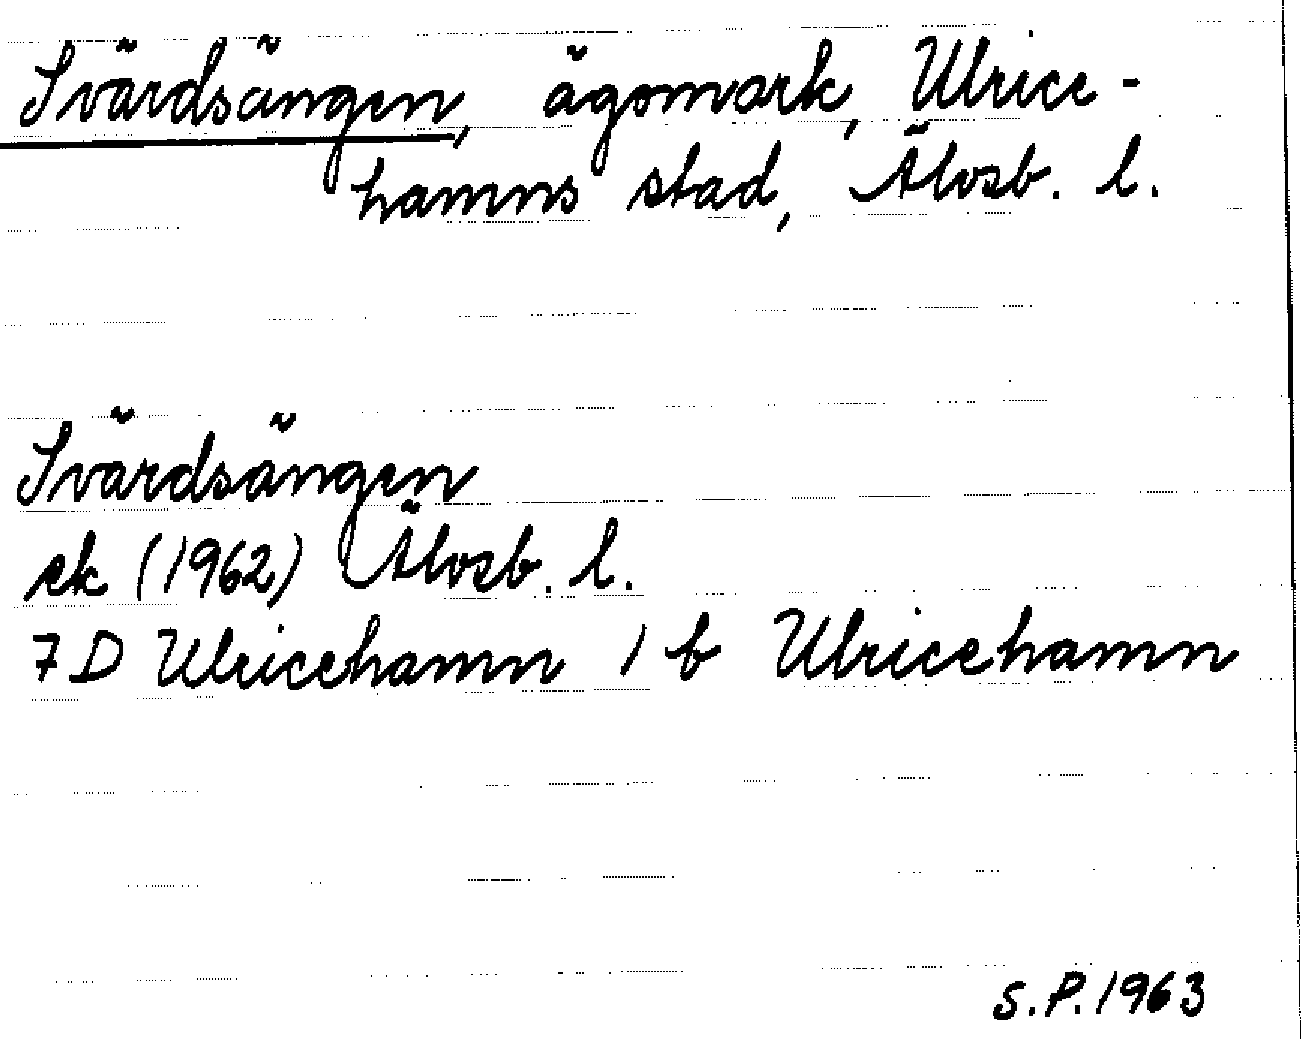 Svärdsängen, ägomark, Ulrice-
hamns stad, Älvsb. l.
Svärdsängen
ek (1962) Älvsb. l.
7 D Ulricehamn 1 b Ulricehamn
S.P. 1963